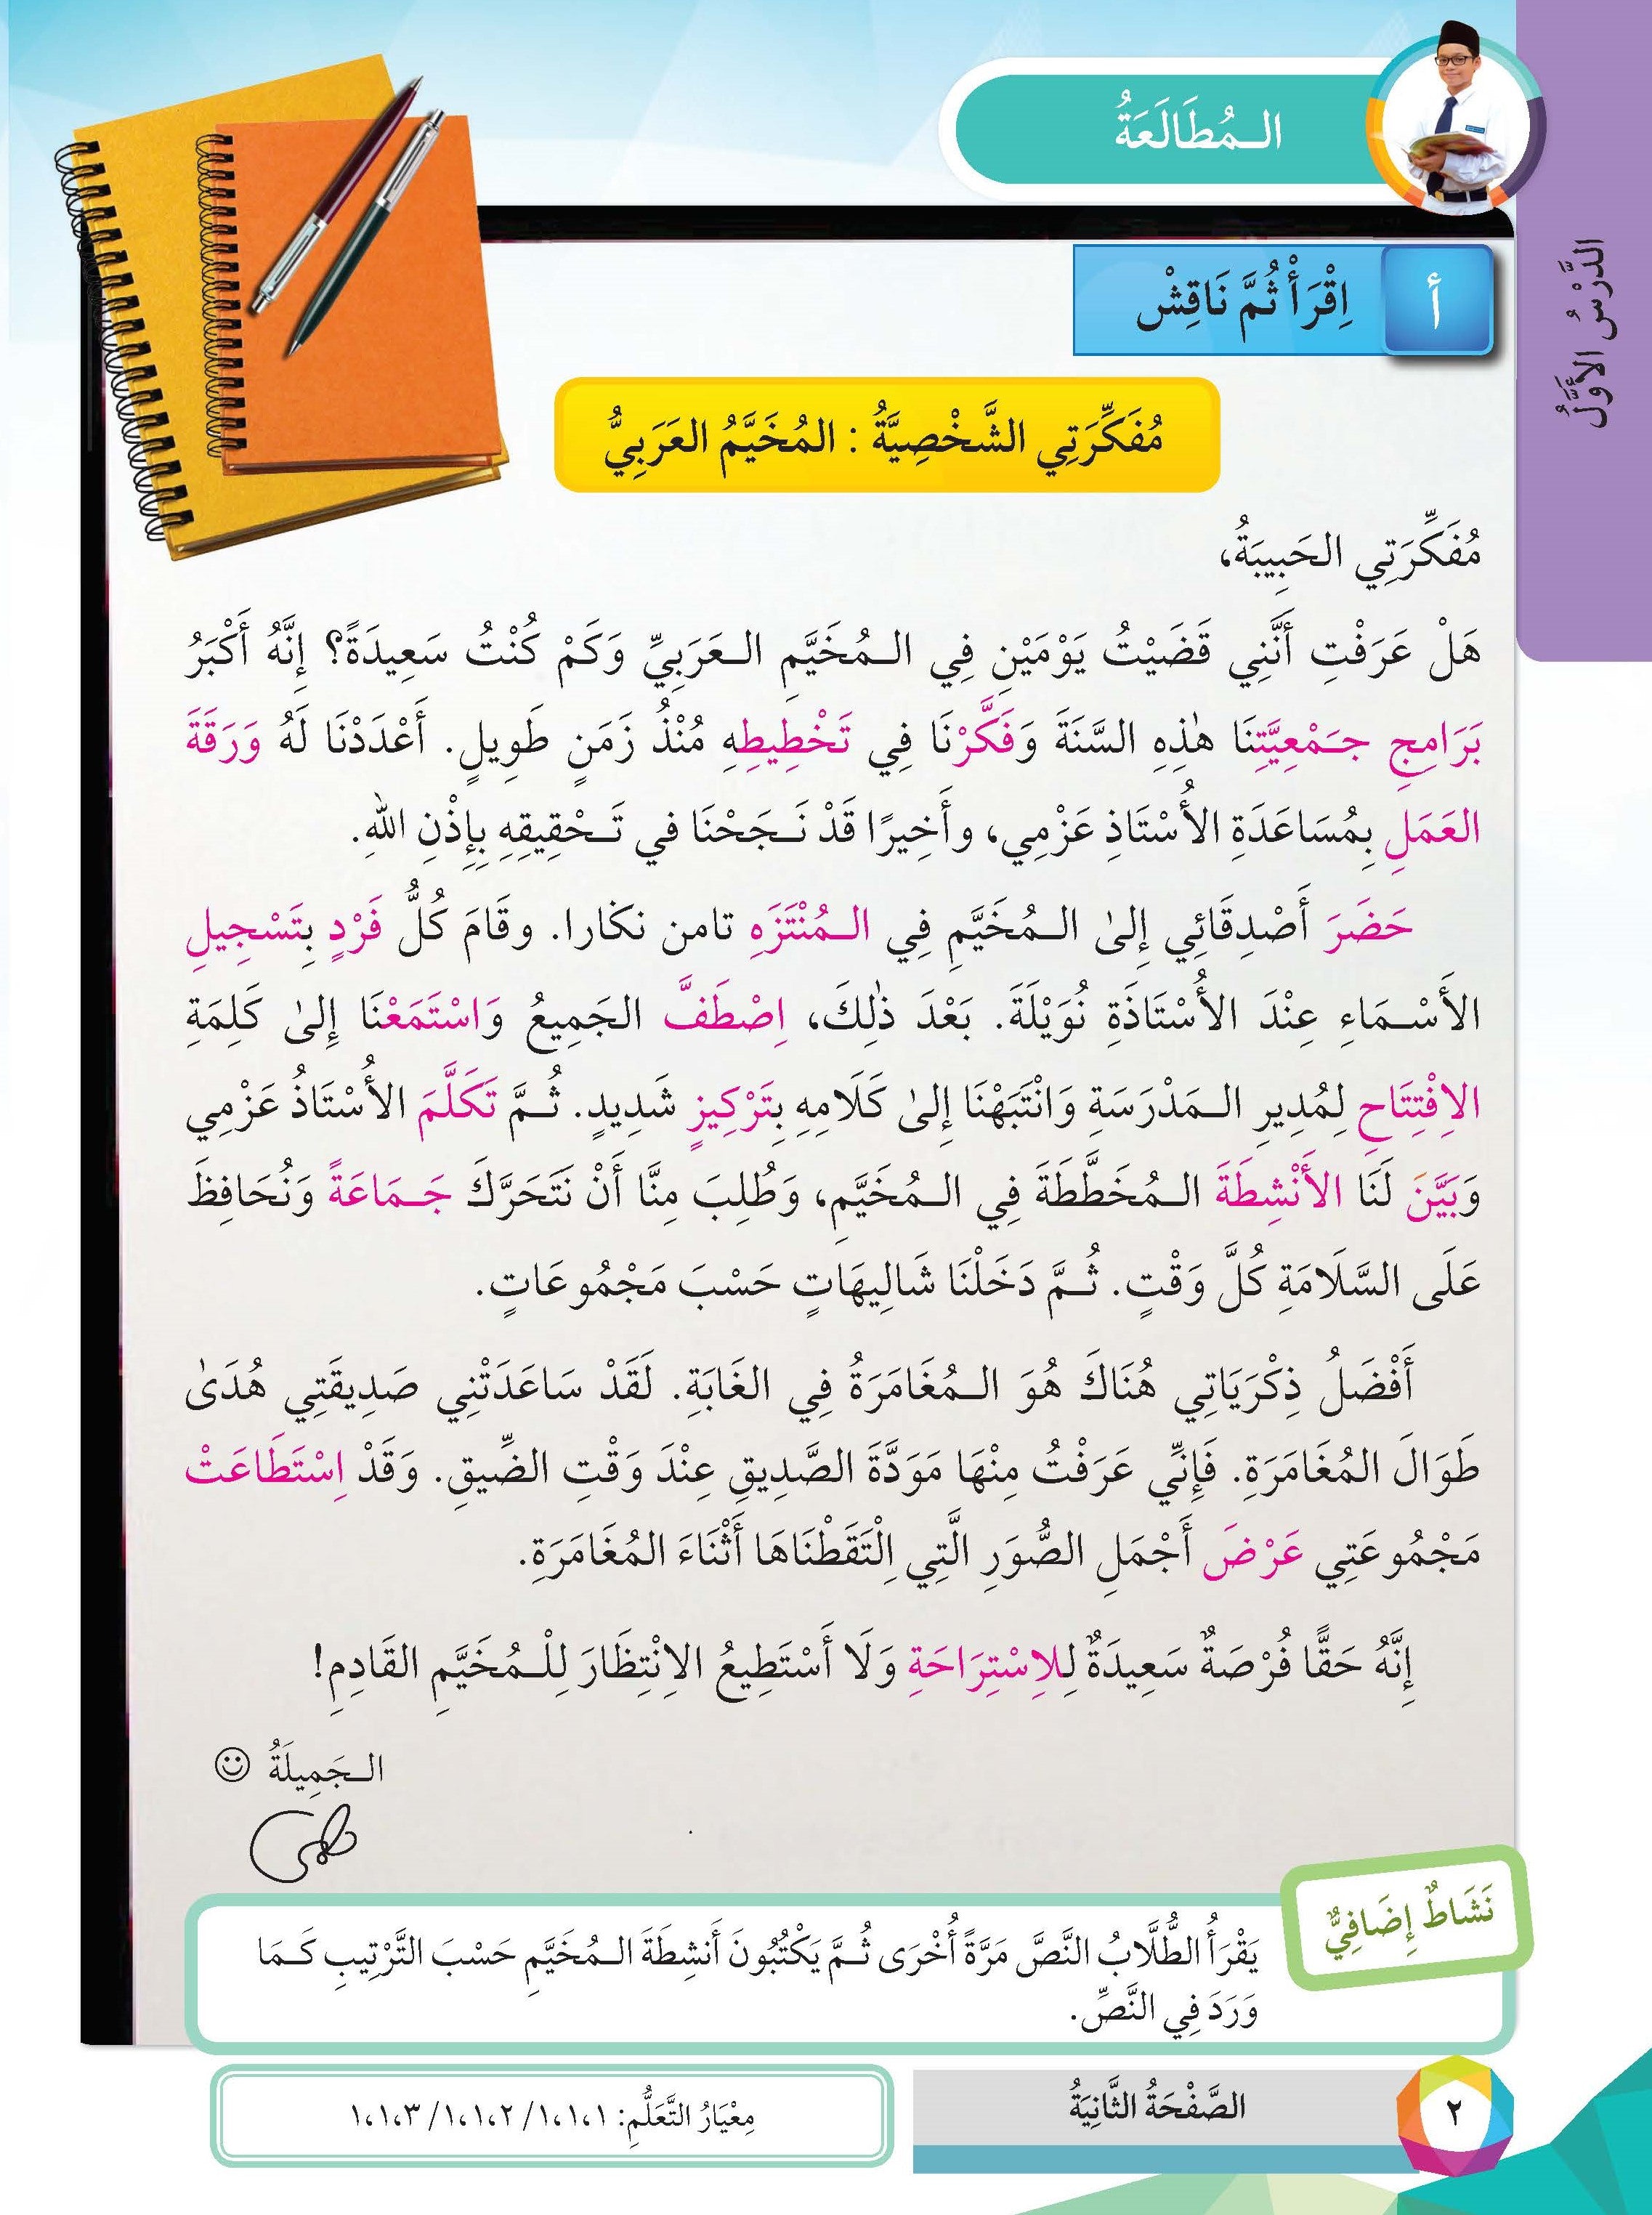 الـمُطَالَعَةُ
الدَّرْسُ الأَوَّلُ
أ
اِقْرَأْ ثُمَّ نَاقِشْ
مُفَكِّرَتِي الشَّخْصِيَّةُ : المُخَيَّمُ العَرَبِيُّ
مُفَكِّرَتِي الحَبِيبَةُ،
هَلْ عَرَفْتِ أَنَّنِي قَضَيْتُ يَوْمَيْنِ فِي الـمُخَيَّمِ الـعَرَبِيِّ وَكَمْ كُنْتُ سَعِيدَةً؟ إِنَّهُ أَكْبَرُ
بَرَامِجِ جَـمْعِيَّتِنَا هٰذِهِ السَّنَةَ وَفَكَّرْنَا فِي تَخْطِيطِهِ مُنْذُ زَمَنٍ طَوِيلٍ. أَعْدَدْنَا لَهُ وَرَقَةَ
العَمَلِ بِمُسَاعَدَةِ الأُسْتَاذِ عَزْمِي، وأَخِيرًا قَدْ نَـجَحْنَا في تَـحْقِيقِهِ بِإِذْنِ اللهِ.
حَضَرَ أَصْدِقَائِي إِلىٰ الـمُخَيَّمِ فِي الـمُنْتَزَهِ تامن نݢارا. وقَامَ كُلُّ فَرْدٍ بِتَسْجِيلِ
الأَسْـمَاءِ عِنْدَ الأُسْتَاذَةِ نُوَيْلَةَ. بَعْدَ ذٰلِكَ، اِصْطَفَّ الجَمِيعُ وَاسْتَمَعْنَا إِلىٰ كَلِمَةِ
الاِفْتِتَاحِ لِمُدِيرِ الـمَدْرَسَةِ وَانْتَبَهْنَا إِلىٰ كَلَامِهِ بِتَرْكِيزٍ شَدِيدٍ. ثُـمَّ تَكَلَّمَ الأُسْتَاذُ عَزْمِي
وَبَيَّنَ لَنَا الأَنْشِطَةَ الـمُخَطَّطَةَ فِي الـمُخَيَّمِ، وَطُلِبَ مِنَّا أَنْ نَتَحَرَّكَ جَـمَاعَةً وَنُحَافِظَ
عَلَى السَّلَامَةِ كُلَّ وَقْتٍ. ثُـمَّ دَخَلْنَا شَالِيهَاتٍ حَسْبَ مَجْمُوعَاتٍ.
أَفْضَلُ ذِكْرَيَاتِي هُنَاكَ هُوَ الـمُغَامَرَةُ فِي الغَابَةِ. لَقَدْ سَاعَدَتْنِي صَدِيقَتِي هُدَىٰ
طَوَالَ المُغَامَرَةِ. فَإِنِّي عَرَفْتُ مِنْهَا مَوَدَّةَ الصَّدِيقِ عِنْدَ وَقْتِ الضِّيقِ. وَقَدْ اِسْتَطَاعَتْ
مَجْمُوعَتِي عَرْضَ أَجْمَلِ الصُّوَرِ الَّتِي اِلْتَقَطْنَاهَا أَثْنَاءَ المُغَامَرَةِ.
إِنَّهُ حَقًّا فُرْصَةٌ سَعِيدَةٌ لِلاِسْتِرَاحَةِ وَلَا أَسْتَطِيعُ الاِنْتِظَارَ لِلْـمُخَيَّمِ القَادِمِ!
الـجَمِيلَةُ ☺
نَشَاطٌ إِضَافِيٌّ
يَقْرَأُ الطُّلَّابُ النَّصَّ مَرَّةً أُخْرَى ثُـمَّ يَكْتُبُونَ أَنشِطَةَ الـمُخَيَّمِ حَسْبَ التَّرْتِيبِ كَـمَا
وَرَدَ فِي النَّصِّ.
مِعْيَارُ التَّعَلُّمِ: ١،١،١ /١،١،٢ /١،١،٣
الصَّفْحَةُ الثَّانِيَةُ
٢